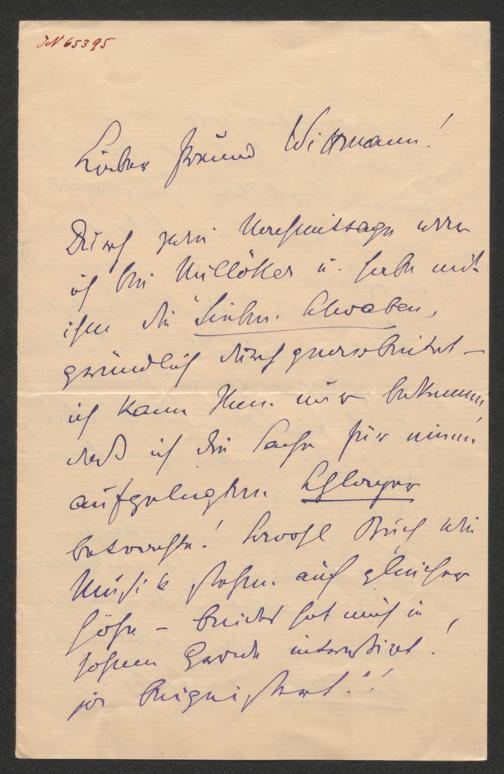 IN 65395
Lieber Freund Wittmann!
Durch zwei Nachmittage war
ich bei Millöcker u. habe mit
ihm die "Sieben Schwaben"
gründlich durchgearbeitet –
ich kann Ihnen nur bekennen,
daß ich die Sache für einen
aufgelegten Schlager
betrachte! Sowohl Buch wie
Musik stehen auf gleicher
Höhe – beides hat mich in
hohem Grade interessirt!
ja begeistert!!